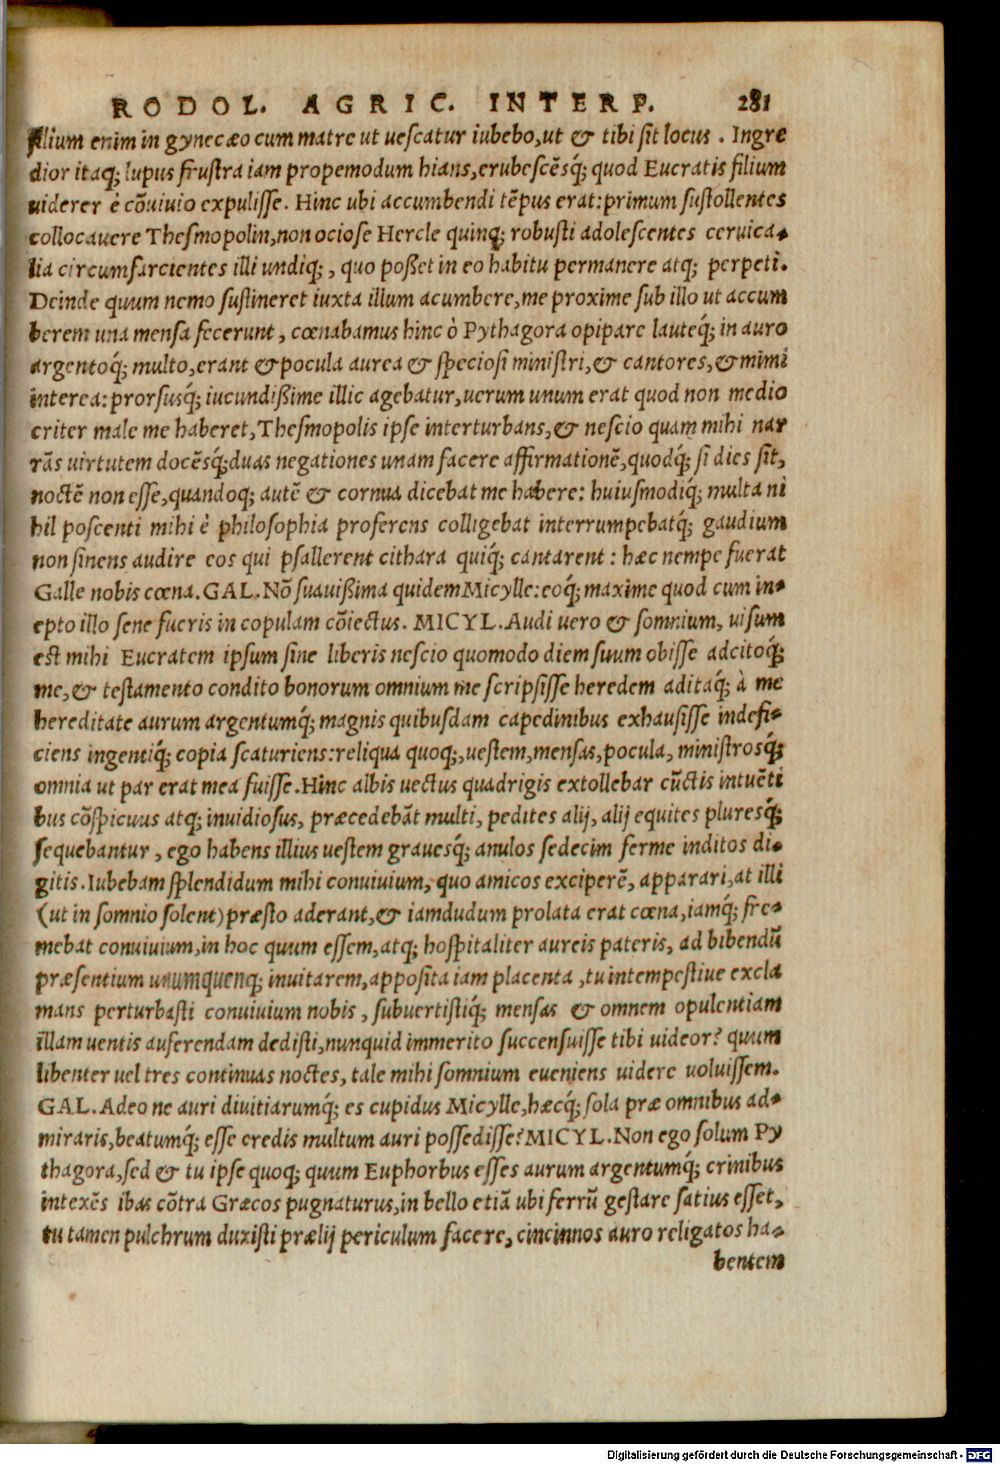 RODOL. AGRIC. INTERP. 281
filium enim in gynecæo cum matre ut uescatur iubebo,ut & tibi sit locus . Ingre
dior itaq; lupus frustra iam propemodum hians,erubescẽsq́; quod Eucratis filium
uiderer è cõuiuio expulisse. Hinc ubi accumbendi tẽpus erat:primum sustollentes
collocauere Thesmopolin,non ociose Hercle quinq; robusti adolescentes ceruica-
lia circumsarcientes illi undiq;, quo posset in eo habitu permanere atq; perpeti.
Deinde quum nemo sustineret iuxta illum acumbere,me proxime sub illo ut accum
berem una mensa fecerunt, cœnabamus hinc ò Pythagora opipare lauteq́; in auro
argentoq́; multo,erant & pocula aurea & speciosi ministri,& cantores,& mimi
interea: prorsusq́; iucundissime illic agebatur,uerum unum erat quod non medio
criter male me haberet,Thesmopolis ipse interturbans,& nescio quam mihi nar
rãs uirtutem docẽsq́;duas negationes unam facere affirmationẽ,quodq́; si dies sit,
noctẽ non esse,quandoq; autẽ & cornua dicebat me habere: huiusmodiq́; multa ni
hil poscenti mihi è philosophia proferens colligebat interrumpebatq́; gaudium
non sinens audire eos qui psallerent cithara quiq́; cantarent : hæc nempe fuerat
Galle nobis cœna. GAL. Nõ suauissima quidem Micylle: eoq́; maxime quod cum in-
epto illo sene fueris in copulam cõiectus. MICYL. Audi uero & somnium, uisum
est mihi Eucratem ipsum sine liberis nescio quomodo diem suum obisse adcitoq́;
me,& testamento condito bonorum omnium me scripsisse heredem aditaq́; à me
hereditate aurum argentumq́; magnis quibusdam capedinibus exhausisse indefi-
ciens ingentiq́; copia scaturiens:reliqua quoq;,uestem,mensas,pocula, ministrosq́;
omnia ut par erat mea fuisse. Hinc albis uectus quadrigis extollebar cũctis intuẽti
bus cõspicuus atq; inuidiosus, præcedebãt multi, pedites alij, alij equites pluresq́;
sequebantur, ego habens illius uestem grauesq́; anulos sedecim ferme inditos di-
gitis. Iubebam splendidum mihi conuiuium, quo amicos exciperẽ, apparari,at illi
(ut in somnio solent) præsto aderant,& iamdudum prolata erat cœna,iamq́; fre-
mebat conuiuium,in hoc quum essem,atq; hospitaliter aureis pateris, ad bibendũ
præsentium unumquenq; inuitarem,apposita iam placenta ,tu intempestiue excla
mans perturbasti conuiuium nobis, subuertistiq́; mensas & omnem opulentiam
illam uentis auferendam dedisti,nunquid immerito succensuisse tibi uideor? quum
libenter uel tres continuas noctes, tale mihi somnium eueniens uidere uoluissem.
GAL. Adeo ne auri diuitiarumq́; es cupidus Micylle,hæcq́; sola præ omnibus ad-
miraris,beatumq́; esse credis multum auri possedisse? MICYL. Non ego solum Py
thagora,sed & tu ipse quoq; quum Euphorbus esses aurum argentumq́; crinibus
intexẽs ibas cõtra Græcos pugnaturus,in bello etiã ubi ferrũ gestare satius esset,
tu tamen pulchrum duxisti prælij periculum facere, cincinnos auro religatos ha-
bentem
Digitalisierung gefördert durch die Deutsche Forschungsgemeinschaft - DFG